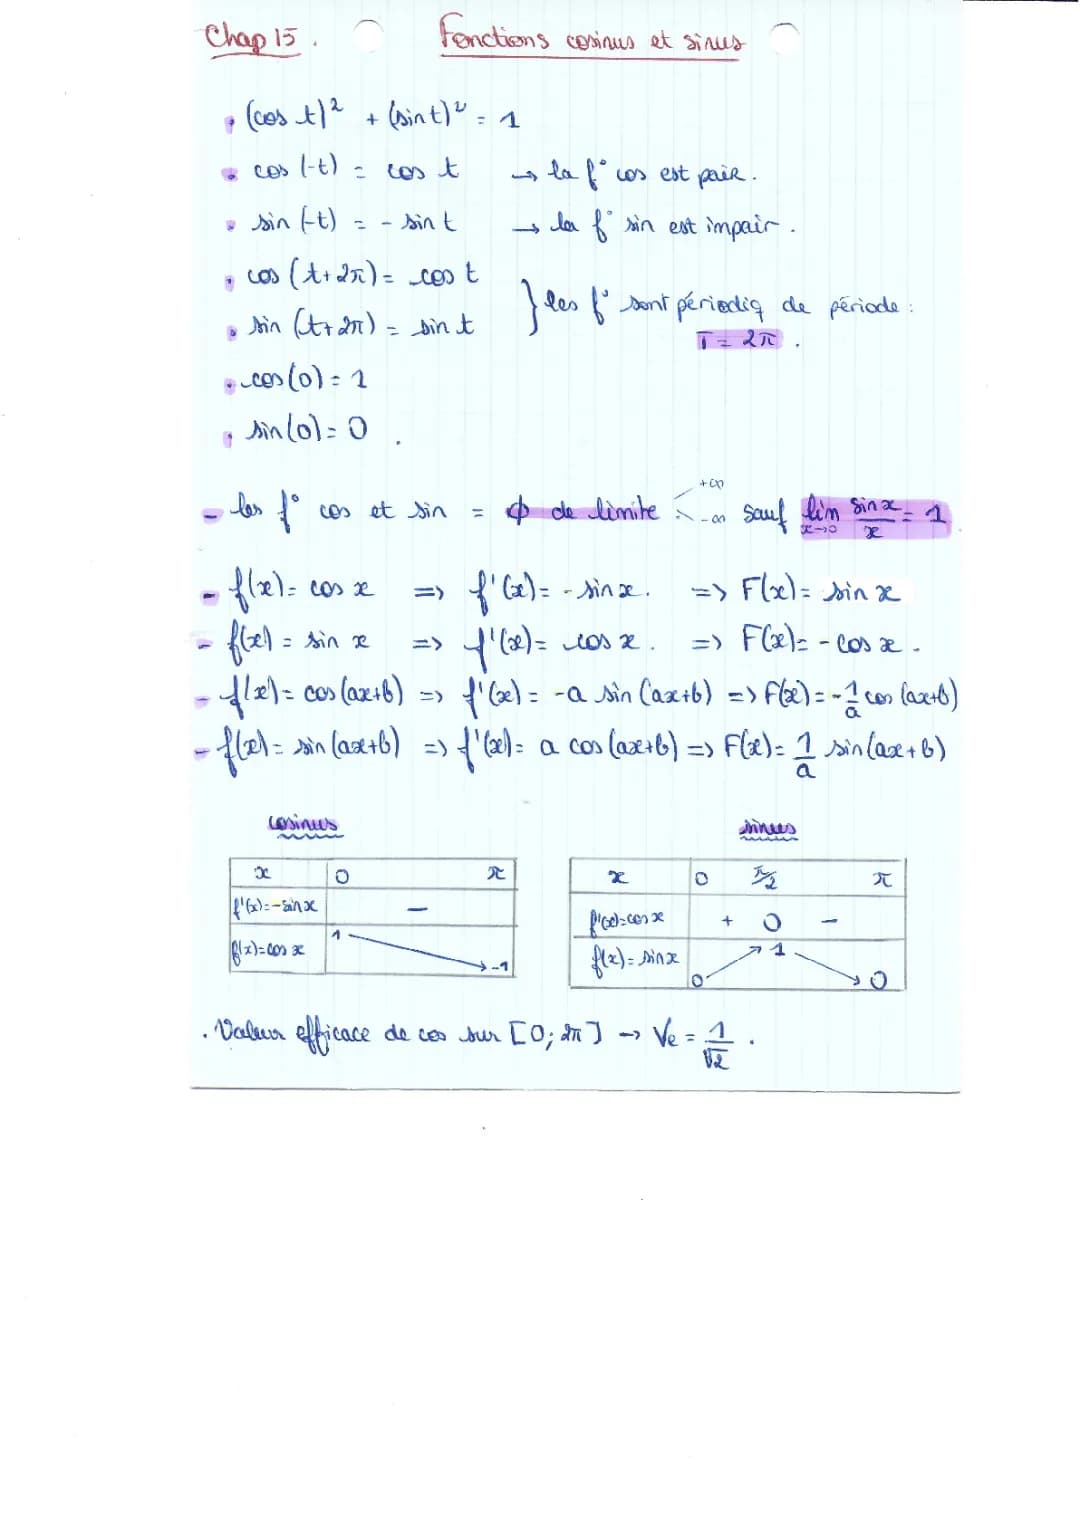 Chap 15.
Fonctions cosinus et sinus
• (cos t)² + (sin t)² = 1
• cos (-t) = cos t → la f° cos est pair.
• sin (-t) = - sin t → la f° sin est impair.
• cos (t+2π) = cos t
• sin (t+2π) = sin t } les f° sont périodiq de période :
T = 2π.
• cos(0) = 1
• sin(0) = 0.
- les f° cos et sin = ϕ de limite +∞ -∞ sauf lim x→0 sin x / x = 1
- f(x) = cos x => f'(x) = - sin x. => F(x) = sin x
- f(x) = sin x => f'(x) = cos x. => F(x) = - cos x.
- f(x) = cos(ax+b) => f'(x) = -a sin (ax+b) => F(x) = - 1/a cos (ax+b)
- f(x) = sin(ax+b) => f'(x) = a cos(ax+b) => F(x) = 1/a sin(ax+b)
cosinus
x 0 π
f'(x)=-sin x −
f(x)=cos x 1 -1
sinus
x 0 π/2 π
f'(x)=cos x + 0 −
f(x)= sin x 0 1 0
. Valeur efficace de cos sur [0; 2π] → Ve = 1/√2.